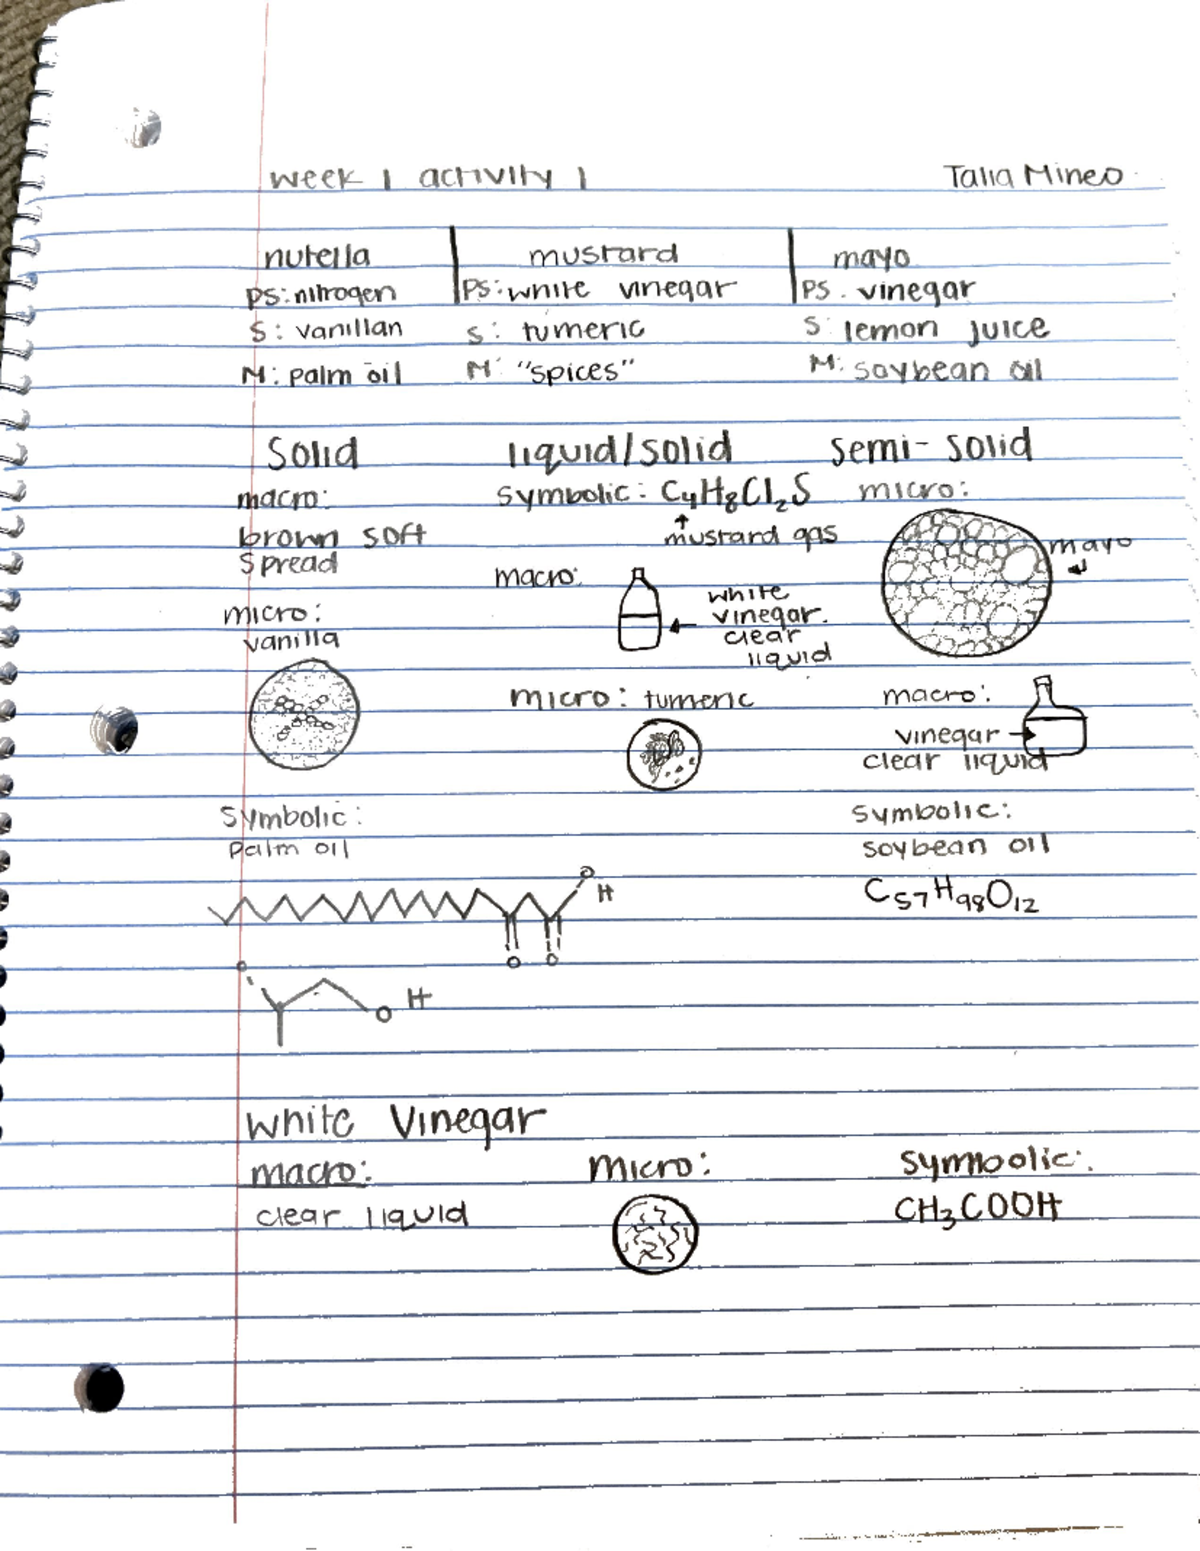 week 1 activity 1 Talia Mineo
nutella mustard mayo
PS: nitrogen PS: white vinegar PS. vinegar
S: vanillan S: tumeric S: lemon juice
M: palm oil M: "spices" M: soybean oil
Solid liquid/solid semi-solid
macro: symbolic: C₄H₈Cl₂S micro:
brown soft ↑ mustard gas mayo
spread
macro: white
vinegar.
clear
liquid
micro:
vanilla
micro: tumeric macro:
vinegar →
clear liquid
symbolic: symbolic:
palm oil soybean oil
C₅₇H₉₈O₁₂
O H
O O
O H
O
white vinegar
macro: micro: symbolic:
clear liquid CH₃COOH